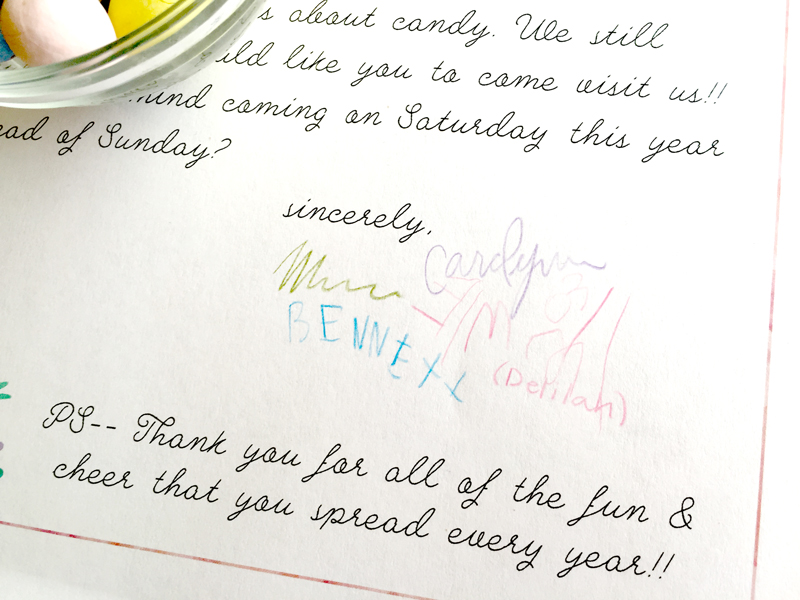 about candy. We still
like you to come visit us!!
coming on Saturday this year
of Sunday?
sincerely,
Carolynn
BENNETT
(Delilah)
PS-- Thank you for all of the fun &
cheer that you spread every year!!